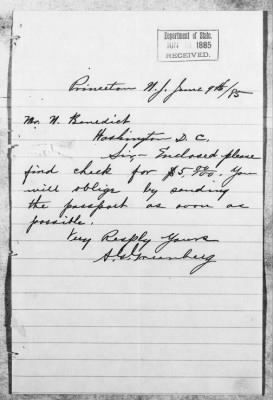 Department of State.
JUN 1885
RECEIVED.
Princeton N. J. June 9th/85
Mr. N. Benedict
Washington D. C.
Sir - Enclosed please
find check for $5, You
will oblige by sending
the passport as soon as
possible.
Very Resply Yours
A. S. Greenberg